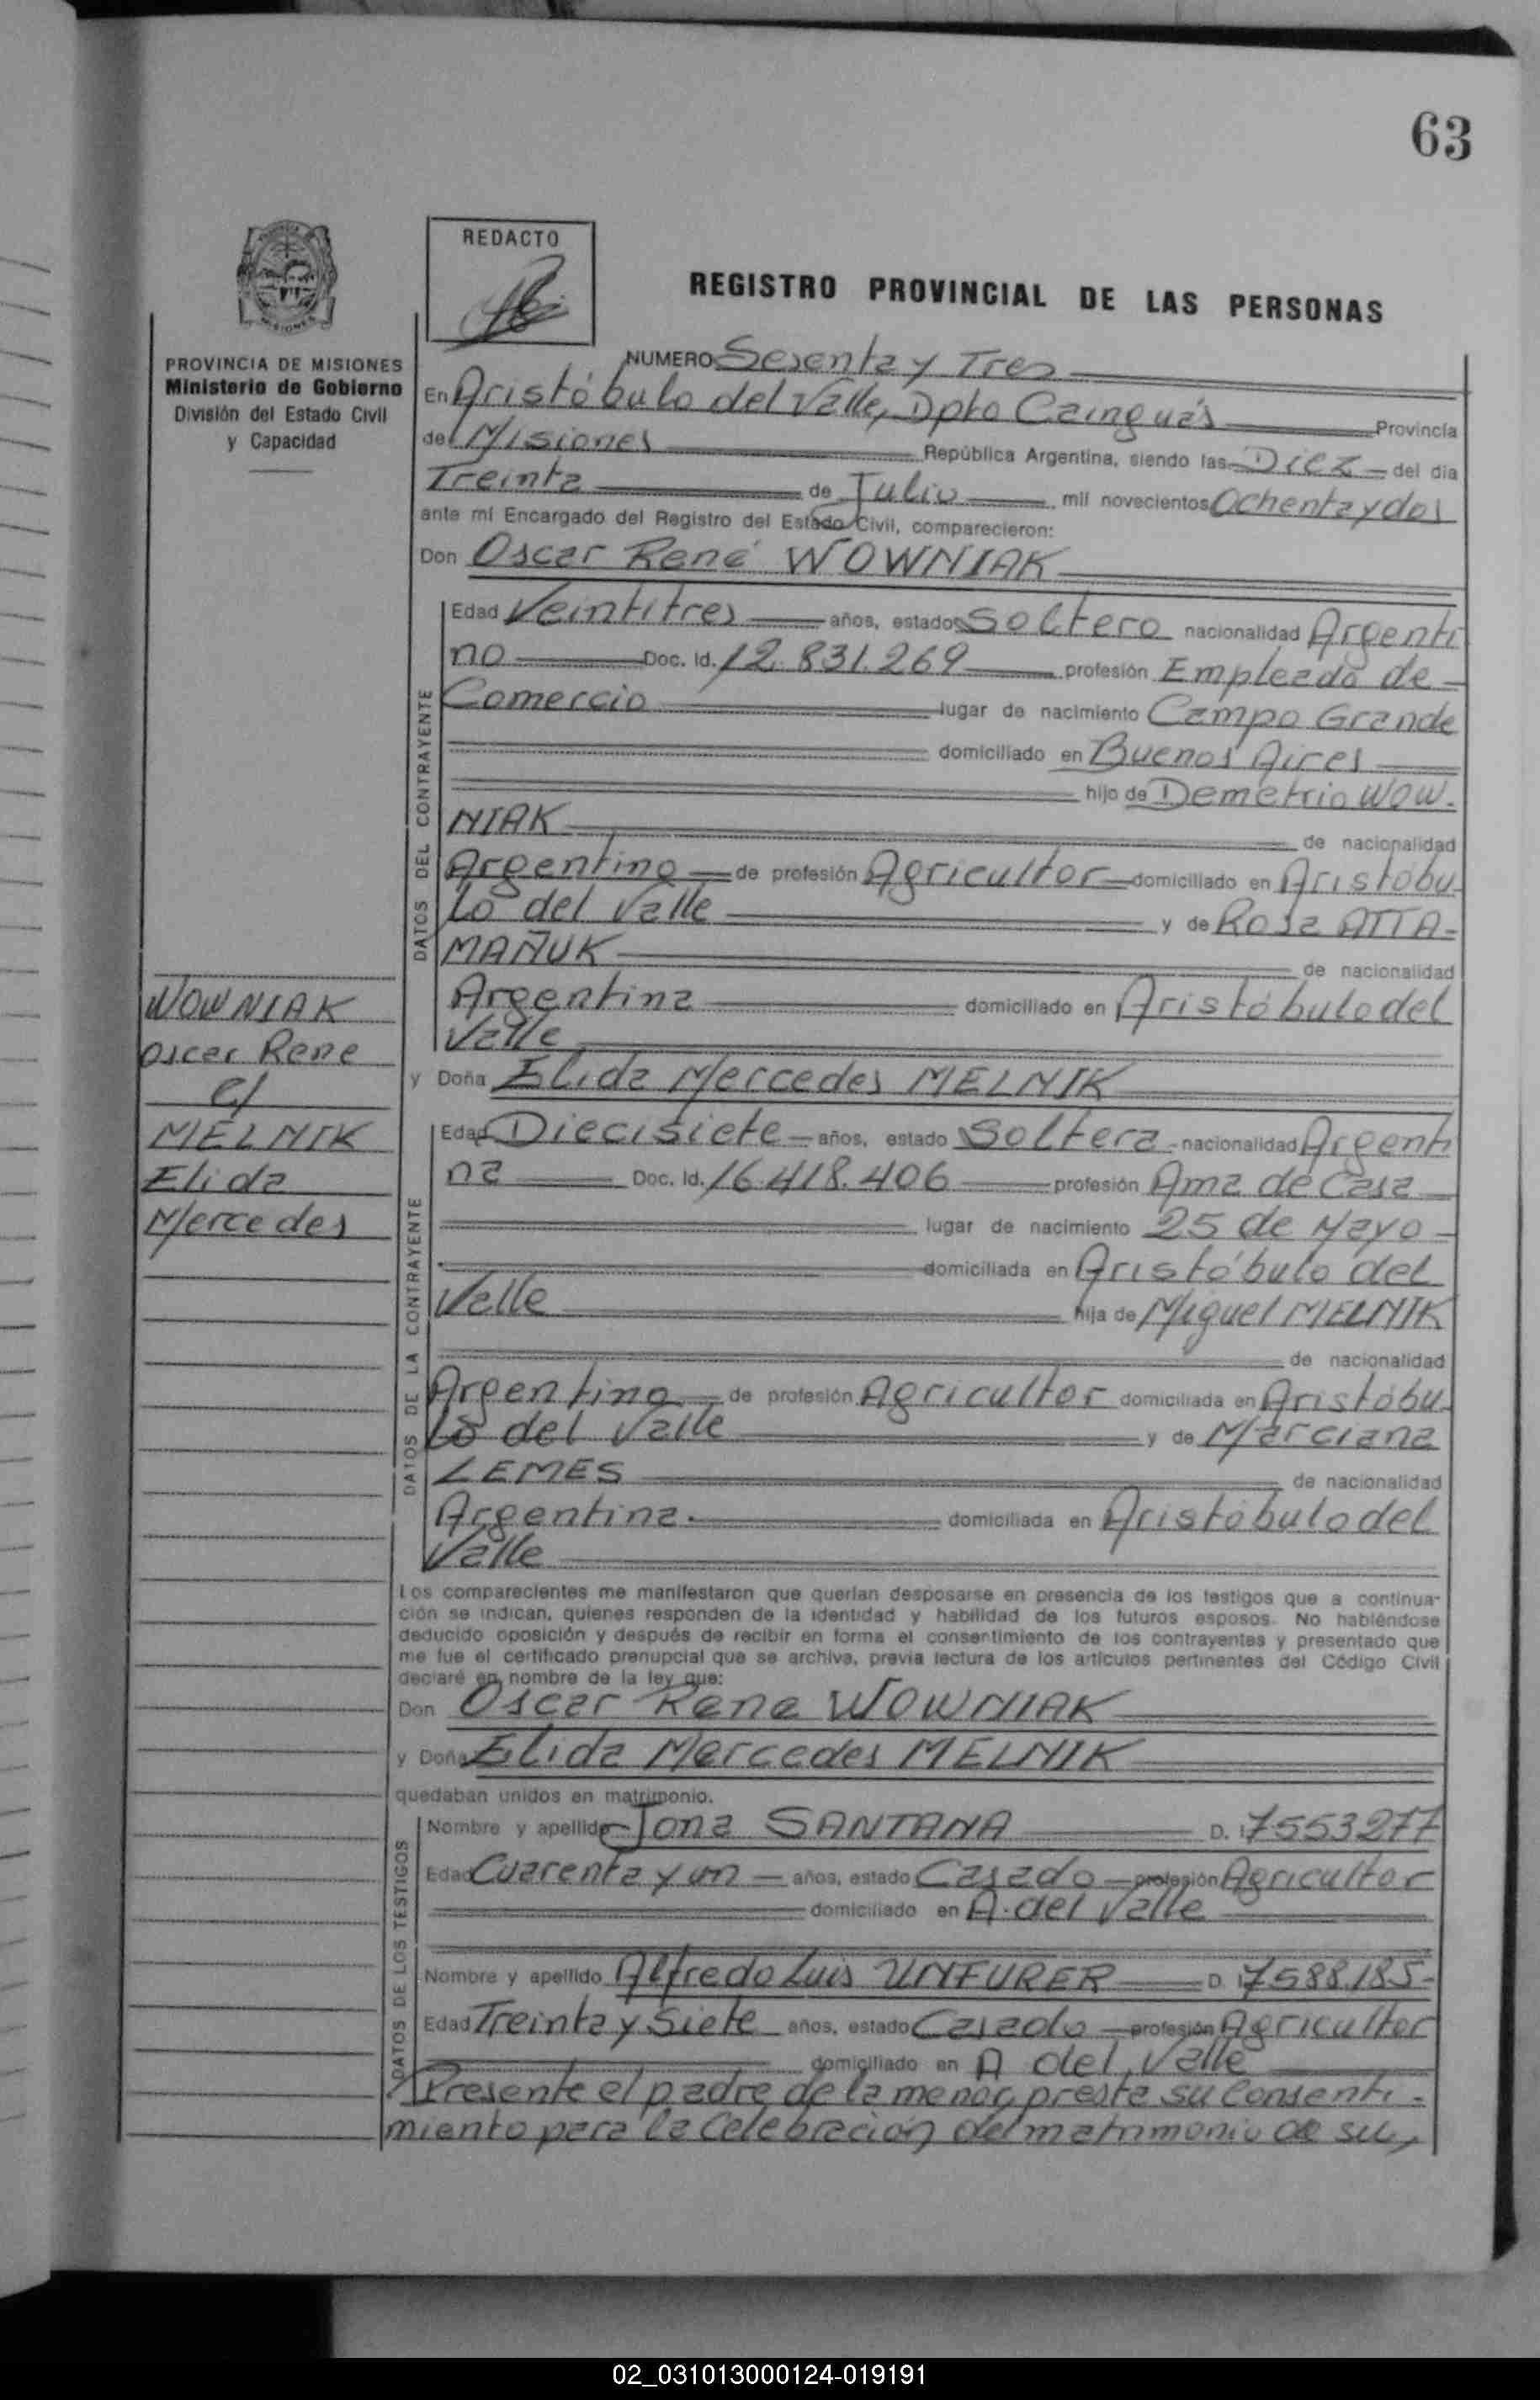 63
REDACTO
REGISTRO PROVINCIAL DE LAS PERSONAS
PROVINCIA DE MISIONES
Ministerio de Gobierno
División del Estado Civil
y Capacidad
NUMERO Sesenta y Tres
En Aristóbulo del Valle, Dpto Cainguás Provincia
de Misiones República Argentina, siendo las Diez del día
Treinta de Julio mil novecientos Ochenta y dos
ante mí Encargado del Registro del Estado Civil, comparecieron:
Don Oscar René WOWNIAK
DATOS DEL CONTRAYENTE
Edad Veintitres años, estado Soltero nacionalidad Argenti
no Doc. Id. 12.831.269 profesión Empleado de
Comercio lugar de nacimiento Campo Grande
domiciliado en Buenos Aires
hijo de Demetrio WOW.
NIAK de nacionalidad
Argentino de profesión Agricultor domiciliado en Aristóbu-
lo del Valle y de Rosa ATTA-
MAÑUK de nacionalidad
Argentina domiciliado en Aristóbulo del
Valle
WOWNIAK
Oscar Rene
c/
MELNIK
Elida
Mercedes
y Doña Elida Mercedes MELNIK
DATOS DE LA CONTRAYENTE
Edad Diecisiete años, estado Soltera nacionalidad Argenti
na Doc. Id. 16.418.406 profesión Ama de Casa
lugar de nacimiento 25 de Mayo
domiciliada en Aristóbulo del
Valle hija de Miguel MELNIK
de nacionalidad
Argentino de profesión Agricultor domiciliada en Aristóbu-
lo del Valle y de Marciana
LEMES de nacionalidad
Argentina. domiciliada en Aristóbulo del
Valle
Los comparecientes me manifestaron que querían desposarse en presencia de los testigos que a continua-
ción se indican, quienes responden de la identidad y habilidad de los futuros esposos. No habiéndose
deducido oposición y después de recibir en forma el consentimiento de los contrayentes y presentado que
me fue el certificado prenupcial que se archiva, previa lectura de los artículos pertinentes del Código Civil
declaré en nombre de la ley que:
Don Oscar Rene WOWNIAK
y Doña Elida Mercedes MELNIK
quedaban unidos en matrimonio.
DATOS DE LOS TESTIGOS
Nombre y apellido Jona SANTANA D. I 7553277
Edad Cuarenta y un años, estado Casado profesión Agricultor
domiciliado en A. del Valle
Nombre y apellido Alfredo Luis UNFURER D. I 7588.185-
Edad Treinta y Siete años, estado Casado profesión Agricultor
domiciliado en A del Valle
Presente el padre de la menor, presta su Consenti-
miento para la Celebración del matrimonio de su,
02_031013000124-019191